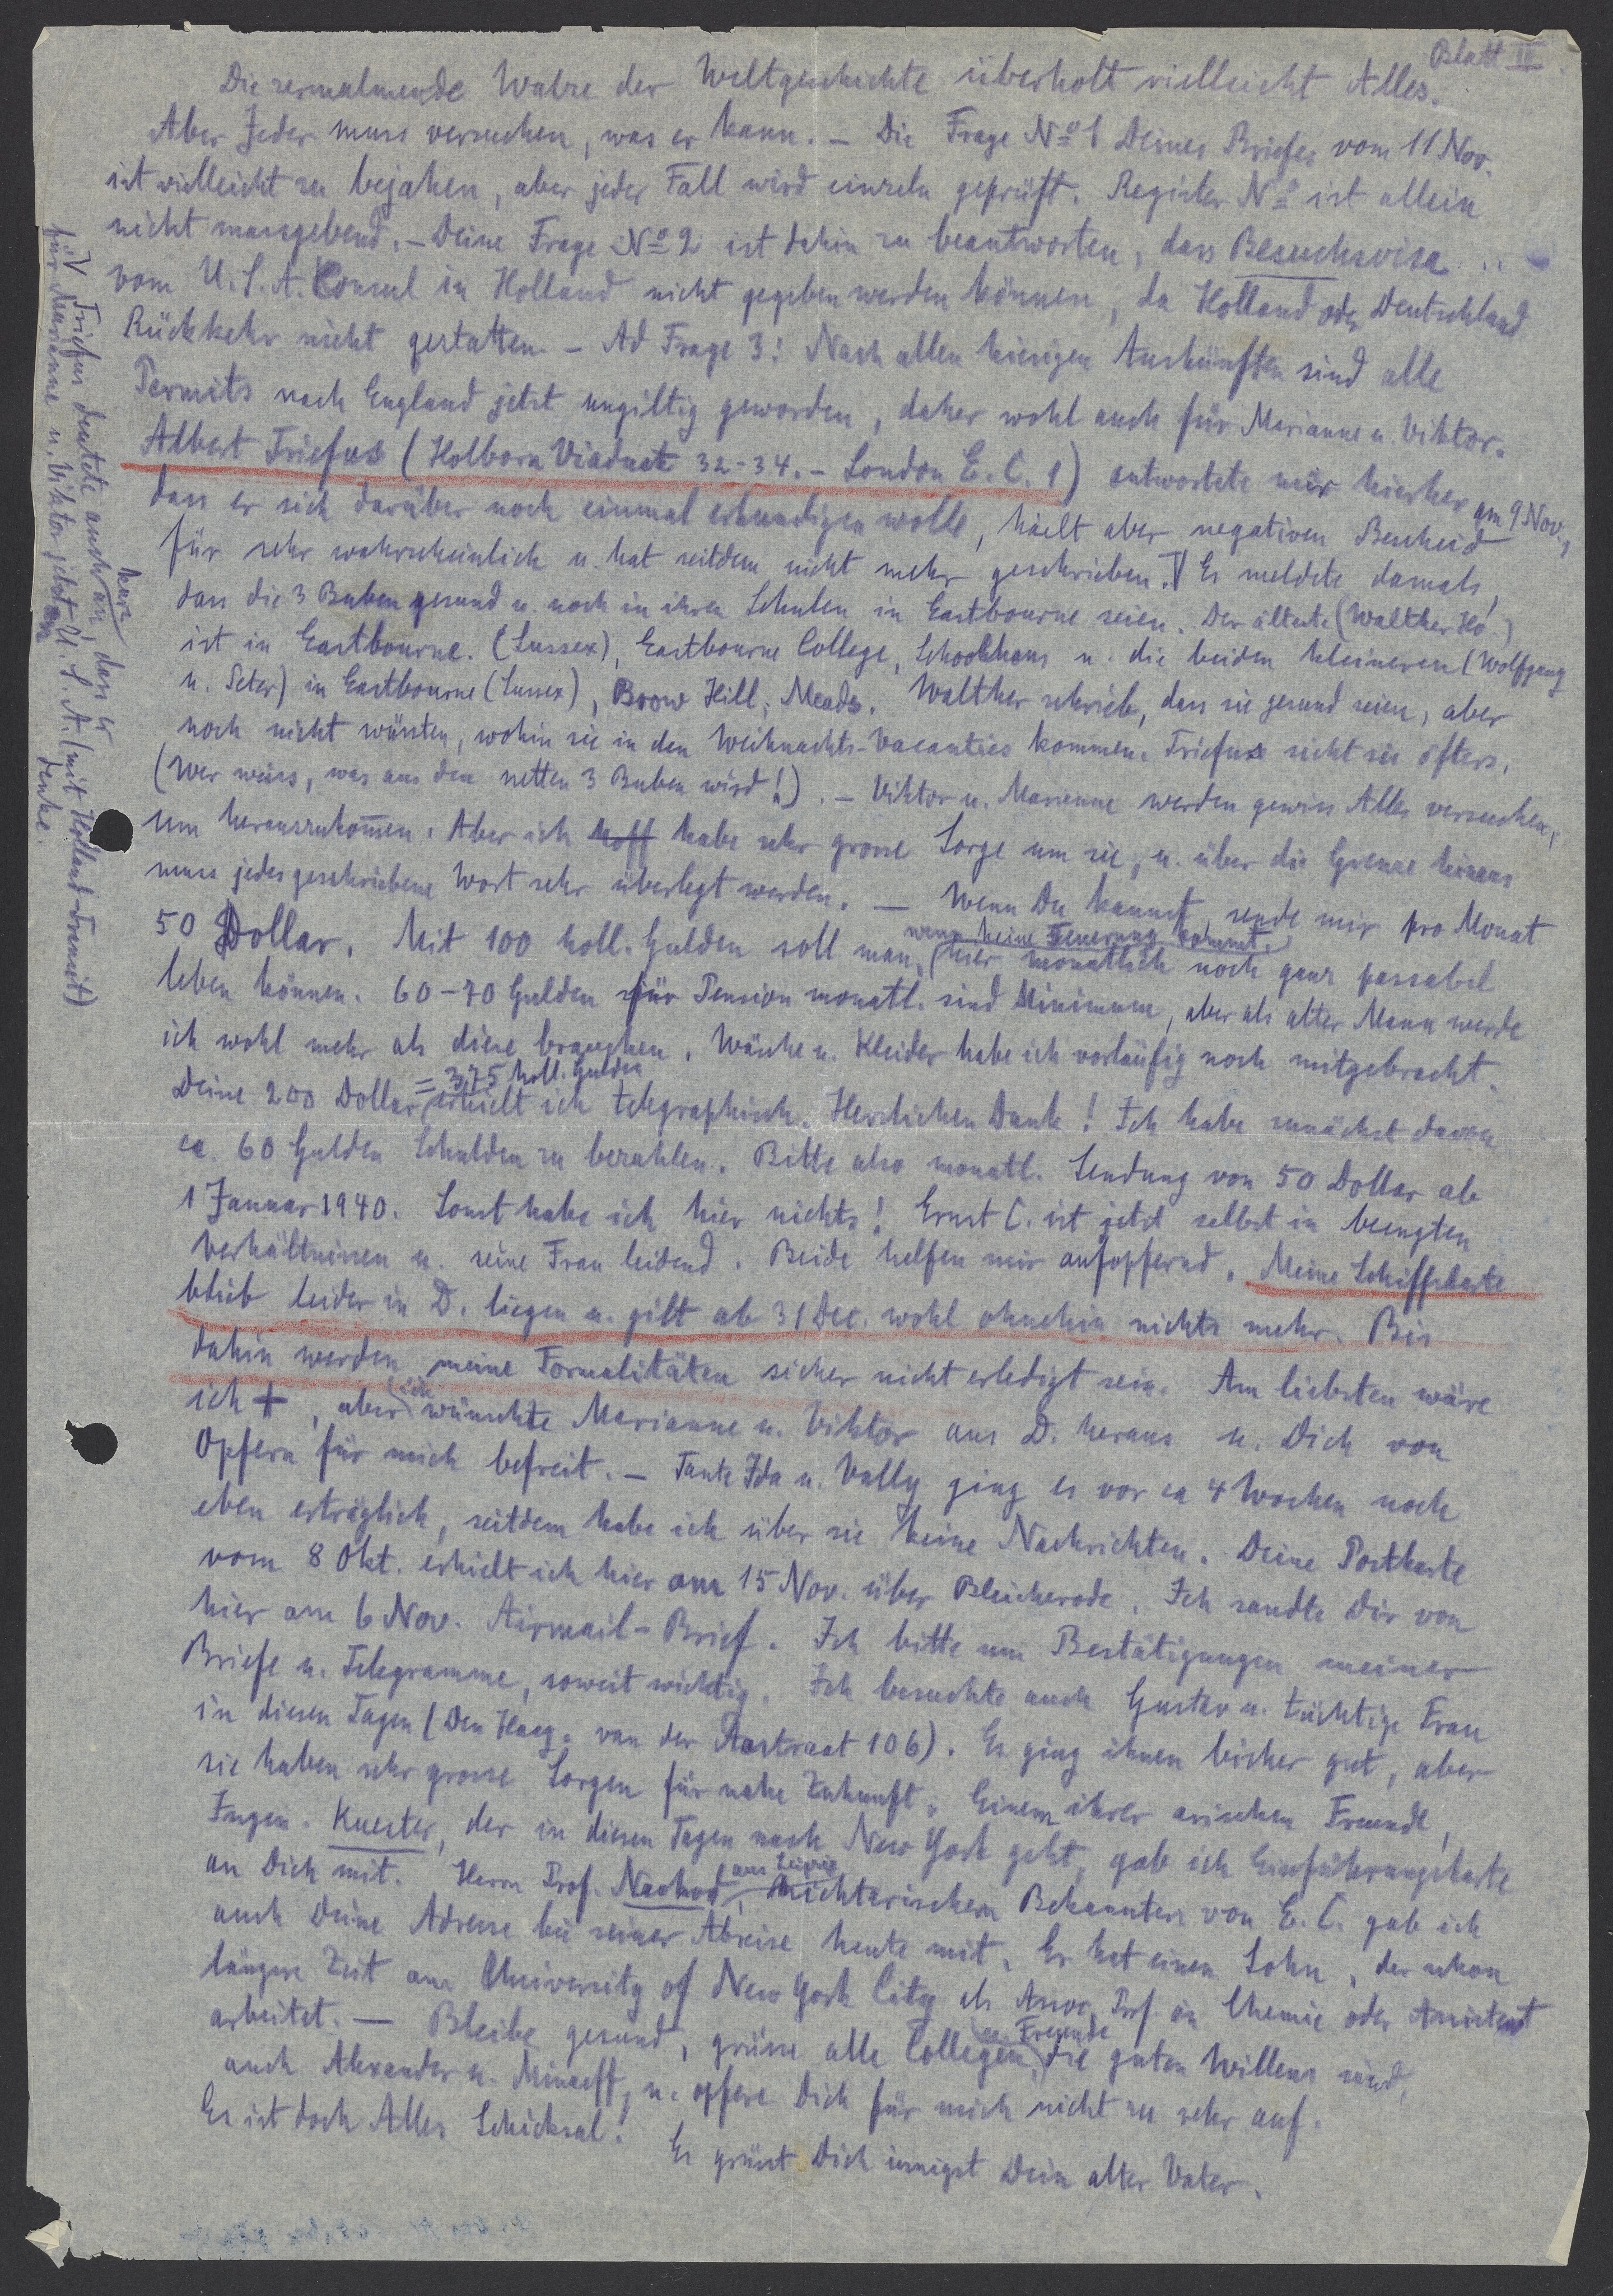 Blatt II
Die zermalmende Walze der Weltgeschichte überholt vielleicht Alles.
Aber Jeder muss versuchen, was er kann. – Die Frage No 1 Deines Briefes vom 11 Nov.
ist vielleicht zu bejahen, aber jeder Fall wird einzeln geprüft. Register No ist allein
nicht massgebend. – Deine Frage No 2 ist dahin zu beantworten, dass Besuchsvisa
vom U.S.A. Consul in Holland nicht gegeben werden können, da Holland oder Deutschland
Rückkehr nicht gestatten. – Ad Frage 3: Nach allen hiesigen Auskünften sind alle
Permits nach England jetzt ungiltig geworden, daher wohl auch für Marianne u. Viktor.
Albert Triefus (Holborn Viaduct 32-34. – London E.C.1) antwortete mir hierher am 9 Nov.,
dass er sich darüber noch einmal erkundigen wolle, hielt aber negativen Bescheid
für sehr wahrscheinlich u. hat seitdem nicht mehr geschrieben. V Er meldete damals,
dass die 3 Buben gesund u. noch in ihren Schulen in Eastbourne seien. Der älteste (Walther Ho.)
ist in Eastbourne. (Sussex), Eastbourne College, Schoolhaus u. die beiden kleineren (Wolfgang
u. Peter) in Eastbourne (Sussex), Brow Hill, Meads. Walther schrieb, dass sie gesund seien, aber
noch nicht wüssten, wohin sie in den Weihnachts-Vacanties kommen. Triefus sieht sie öfters.
(Wer weiss, was aus den netten 3 Buben wird!). – Viktor u. Marianne werden gewiss Alles versuchen,
um herauszukommen. Aber ich hoff habe sehr grosse Sorge um sie, u. über die Grenze hinaus
muss jedes geschriebene Wort sehr überlegt werden. – Wenn Du kannst, sende mir pro Monat
50 Dollar. Mit 100 holl. Gulden soll man, (wenn keine Teuerung kommt) hier monatlich noch ganz passabel
leben können. 60-70 Gulden für Pension monatl. sind Minimum, aber als alter Mann werde
ich wohl mehr als diese brauchen. Wäsche u. Kleider habe ich vorläufig noch mitgebracht.
Deine 200 Dollar = 375 holl. Gulden erhielt ich telegraphisch. Herzlichen Dank! Ich habe zunächst davon
ca. 60 Gulden Schulden zu bezahlen. Bitte also monatl. Sendung von 50 Dollar ab
1 Januar 1940. Sonst habe ich hier nichts! Ernst C. ist jetzt selbst in beengten
Verhältnissen u. seine Frau leidend. Beide helfen mir aufopfernd. Meine Schiffskarte
blieb leider in D. liegen u. gilt ab 31 Dec. wohl ohnehin nichts mehr. Bis
dahin werden meine Formalitäten sicher nicht erledigt sein. Am liebsten wäre
ich +, aber ich wünschte Marianne u. Viktor aus D. heraus u. Dich von
Opfern für mich befreit. – Tante Ida u. Vally ging es vor ca 4 Wochen noch
eben erträglich, seitdem habe ich über sie keine Nachrichten. Deine Postkarte
vom 8 Okt. erhielt ich hier am 15 Nov. über Bleicherode. Ich sandte Dir von
hier am 6 Nov. Airmail-Brief. Ich bitte um Bestätigungen meiner
Briefe u. Telegramme, soweit wichtig. Ich besuchte auch Gustav u. tüchtige Frau
in diesen Tagen (Den Haag. van der Aastraat 106). Es ging ihnen bisher gut, aber
sie haben sehr grosse Sorgen für nahe Zukunft. Einem ihrer arischen Freunde,
Ingen. Kuester, der in diesen Tagen nach New York geht, gab ich Einführungskarte
an Dich mit. Herrn Prof. Nachod aus Leipzig, nichtarischem Bekannten von E.C. gab ich
auch Deine Adresse bei seiner Abreise heute mit. Er hat einen Sohn, der schon
längere Zeit am University of New York City als Assoc. Prf. in Chemie oder Assistent
arbeitet. – Bleibe gesund, grüsse alle Collegen u. Freunde, die guten Willens sind,
auch Alexander u. Minaeff, u. opfere Dich für mich nicht zu sehr auf.
Es ist doch Alles Schicksal!
Es grüsst Dich innigst Dein alter Vater.
V Triefus deutete auch kurz an, dass er
für Marianne u. Viktor jetzt an U.S.A. (mit Holland-Transit)
denke.